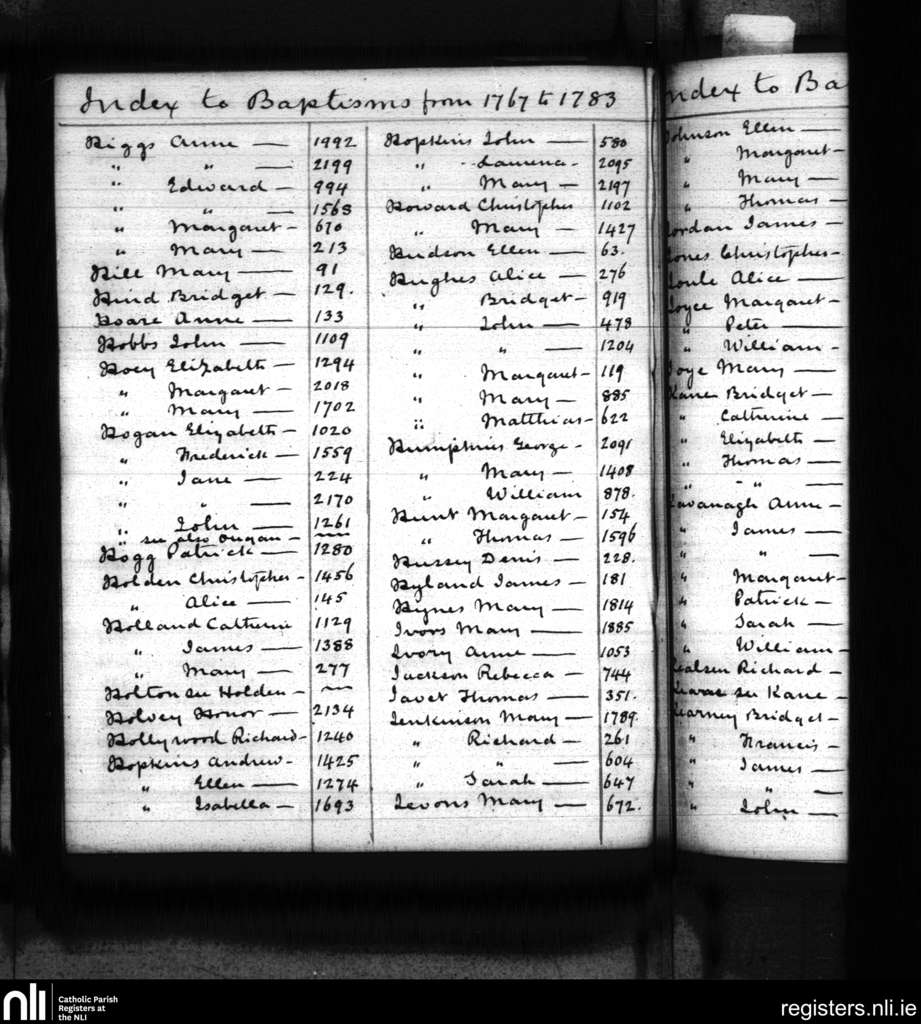 Index to Baptisms from 1767 to 1783
Higgs Anne — 1992
" " — 2199
" Edward — 994
" " — 1568
" Margaret — 670
" Mary — 213
Hill Mary — 91
Hind Bridget — 129.
Hoare Anne — 133
Hobbs John — 1109
Hoey Elizabeth — 1294
" Margaret — 2018
" Mary — 1702
Hogan Elizabeth — 1020
" Frederick — 1559
" Jane — 224
" " — 2170
" John — 1261
" see also Ougan —
Hogg Patrick — 1280
Holden Christopher - 1456
" Alice — 145
Holland Catherine 1129
" James — 1388
" Mary — 277
Holton see Holden -
Holvey Honor — 2134
Hollywood Richard - 1240
Hopkins Andrew - 1425
" Ellen — 1274
" Isabella — 1693
Hopkins John — 580
" - 2095
" Mary — 2197
Howard Christopher 1102
" Mary — 1427
Hudson Ellen — 63.
Hughes Alice — 276
" Bridget — 919
" John — 478
" " — 1204
" Margaret - 119
" Mary — 885
" Matthias - 622
Humphries George - 2091
" Mary — 1408
" William 878.
Hunt Margaret — 154
" Thomas — 1596
Hussey Denis — 228.
Hyland James — 181
Hynes Mary — 1814
Ivors Mary — 1885
Ivory Anne — 1053
Jackson Rebecca — 744
Javet Thomas — 351.
Jenkinson Mary — 1789.
" Richard — 261
" " — 604
" Sarah — 647
Jevons Mary — 672.
Index to Ba
Johnson Ellen —
" Margaret -
" Mary —
" Thomas —
Jordan James —
Jones Christopher -
Joule Alice —
Joyce Margaret -
" Peter —
" William -
Joye Mary —
Kane Bridget —
" Catherine —
" Elizabeth —
" Thomas —
" - " —
Kavanagh Anne -
" James —
" " —
" Margaret -
" Patrick —
" Sarah —
" William -
Richard —
see Kane -
Kearney Bridget -
" Francis -
" James —
" " —
" John —
nli
Catholic Parish
Registers at
the NLI
registers.nli.ie